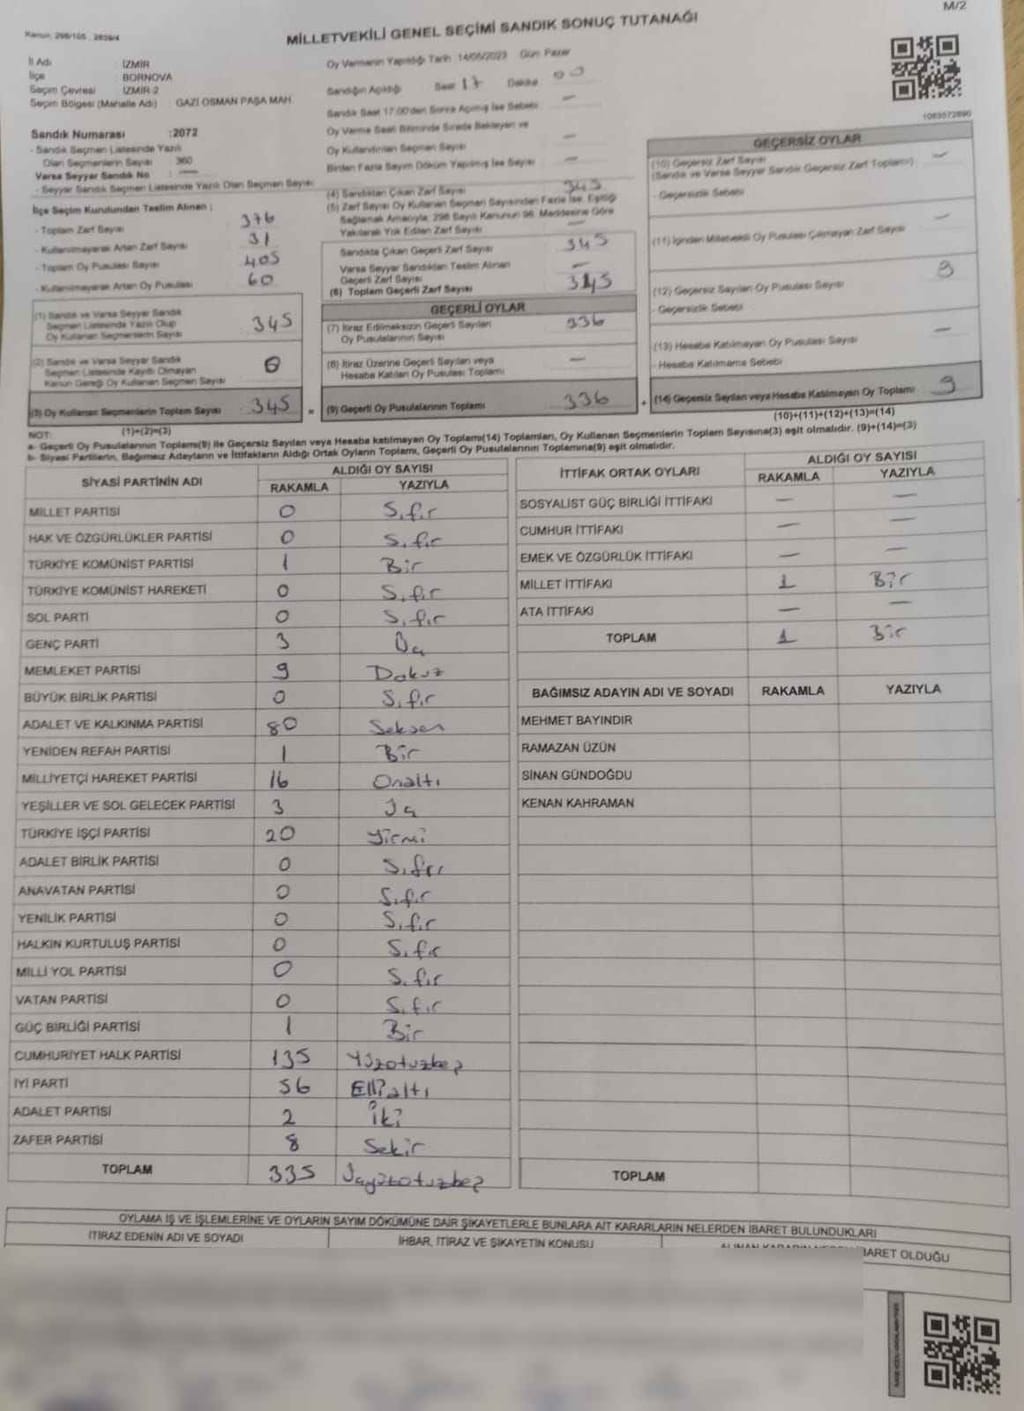 Kanun: 298/105 , 2839/4
M/2
MİLLETVEKİLİ GENEL SEÇİMİ SANDIK SONUÇ TUTANAĞI
İl Adı : İZMİR
İlçe BORNOVA
Seçim Çevresi İZMİR-2
Seçim Bölgesi (Mahalle Adı) GAZİ OSMAN PAŞA MAH.
Sandık Numarası :2072
- Sandık Seçmen Listesinde Yazılı
Olan Seçmenlerin Sayısı 360
Varsa Seyyar Sandık No : —
- Seyyar Sandık Seçmen Listesinde Yazılı Olan Seçmen Sayısı
İlçe Seçim Kurulundan Teslim Alınan :
- Toplam Zarf Sayısı 376
- Kullanılmayarak Artan Zarf Sayısı 31
- Toplam Oy Pusulası Sayısı 405
- Kullanılmayarak Artan Oy Pusulası 60
(1) Sandık ve Varsa Seyyar Sandık
Seçmen Listesinde Yazılı Olup
Oy Kullanan Seçmenlerin Sayısı 345
(2) Sandık ve Varsa Seyyar Sandık
Seçmen Listesinde Kaydı Olmayan
Kanun Gereği Oy Kullanan Seçmen Sayısı 0
(3) Oy Kullanan Seçmenlerin Toplam Sayısı 345 =
(1)+(2)=(3)
Oy Vermenin Yapıldığı Tarih 14/05/2023 Gün Pazar
Sandığın Açıldığı Saat 17 Dakika 00
Sandık Saat 17:00'den Sonra Açılmış İse Sebebi —
Oy Verme Saati Bitiminde Sırada Bekleyen ve
Oy Kullandırılan Seçmen Sayısı —
Birden Fazla Sayım Döküm Yapılmış İse Sayısı —
(4) Sandıktan Çıkan Zarf Sayısı 345
(5) Zarf Sayısı Oy Kullanan Seçmen Sayısından Fazla İse, Eşitliği
Sağlamak Amacıyla, 298 Sayılı Kanunun 98. Maddesine Göre
Yakılarak Yok Edilen Zarf Sayısı —
Sandıkta Çıkan Geçerli Zarf Sayısı 345
Varsa Seyyar Sandıktan Teslim Alınan
Geçerli Zarf Sayısı —
(6) Toplam Geçerli Zarf Sayısı 345
GEÇERLİ OYLAR
(7) İtiraz Edilmeksizin Geçerli Sayılan
Oy Pusulalarının Sayısı 336
(8) İtiraz Üzerine Geçerli Sayılan veya
Hesaba Katılan Oy Pusulası Toplamı —
(9) Geçerli Oy Pusulalarının Toplamı 336 +
1083572890
GEÇERSİZ OYLAR
(10) Geçersiz Zarf Sayısı
(Sandık ve Varsa Seyyar Sandık Geçersiz Zarf Toplamı) —
- Geçersizlik Sebebi
(11) İçinden Milletvekili Oy Pusulası Çıkmayan Zarf Sayısı —
(12) Geçersiz Sayılan Oy Pusulası Sayısı 9
- Geçersizlik Sebebi
(13) Hesaba Katılmayan Oy Pusulası Sayısı —
- Hesaba Katılmama Sebebi
(14) Geçersiz Sayılan veya Hesaba Katılmayan Oy Toplamı 9
(10)+(11)+(12)+(13)=(14)
NOT:
a- Geçerli Oy Pusulalarının Toplamı(9) ile Geçersiz Sayılan veya Hesaba katılmayan Oy Toplamı(14) Toplamları, Oy Kullanan Seçmenlerin Toplam Sayısına(3) eşit olmalıdır. (9)+(14)=(3)
b- Siyasi Partilerin, Bağımsız Adayların ve İttifakların Aldığı Ortak Oyların Toplamı, Geçerli Oy Pusulalarının Toplamına(9) eşit olmalıdır.
SİYASİ PARTİNİN ADI ALDIĞI OY SAYISI
RAKAMLA YAZIYLA
MİLLET PARTİSİ 0 Sıfır
HAK VE ÖZGÜRLÜKLER PARTİSİ 0 Sıfır
TÜRKİYE KOMÜNİST PARTİSİ 1 Bir
TÜRKİYE KOMÜNİST HAREKETİ 0 Sıfır
SOL PARTİ 0 Sıfır
GENÇ PARTİ 3 Üç
MEMLEKET PARTİSİ 9 Dokuz
BÜYÜK BİRLİK PARTİSİ 0 Sıfır
ADALET VE KALKINMA PARTİSİ 80 Seksen
YENİDEN REFAH PARTİSİ 1 Bir
MİLLİYETÇİ HAREKET PARTİSİ 16 Onaltı
YEŞİLLER VE SOL GELECEK PARTİSİ 3 Üç
TÜRKİYE İŞÇİ PARTİSİ 20 Yirmi
ADALET BİRLİK PARTİSİ 0 Sıfır
ANAVATAN PARTİSİ 0 Sıfır
YENİLİK PARTİSİ 0 Sıfır
HALKIN KURTULUŞ PARTİSİ 0 Sıfır
MİLLİ YOL PARTİSİ 0 Sıfır
VATAN PARTİSİ 0 Sıfır
GÜÇ BİRLİĞİ PARTİSİ 1 Bir
CUMHURİYET HALK PARTİSİ 135 Yüzotuzbeş
İYİ PARTİ 56 Elliᵃltı
ADALET PARTİSİ 2 İki
ZAFER PARTİSİ 8 Sekiz
TOPLAM 335 Üçyüzotuzbeş
İTTİFAK ORTAK OYLARI ALDIĞI OY SAYISI
RAKAMLA YAZIYLA
SOSYALİST GÜÇ BİRLİĞİ İTTİFAKI — —
CUMHUR İTTİFAKI — —
EMEK VE ÖZGÜRLÜK İTTİFAKI — —
MİLLET İTTİFAKI 1 Bir
ATA İTTİFAKI — —
TOPLAM 1 Bir
BAĞIMSIZ ADAYIN ADI VE SOYADI RAKAMLA YAZIYLA
MEHMET BAYINDIR
RAMAZAN ÜZÜN
SİNAN GÜNDOĞDU
KENAN KAHRAMAN
TOPLAM
OYLAMA İŞ VE İŞLEMLERİNE VE OYLARIN SAYIM DÖKÜMÜNE DAİR ŞİKAYETLERLE BUNLARA AİT KARARLARIN NELERDEN İBARET BULUNDUKLARI
İTİRAZ EDENİN ADI VE SOYADI İHBAR, İTİRAZ VE ŞİKAYETİN KONUSU İBARET OLDUĞU